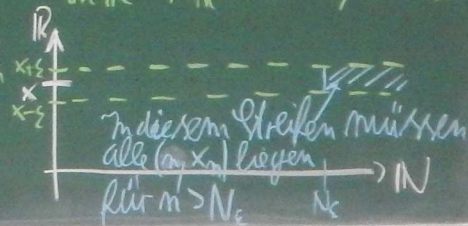 ℝ
x+ε
x
x-ε
In diesem Streifen müssen
alle (n, xₙ) liegen
ℕ
für n > Nε
Nε